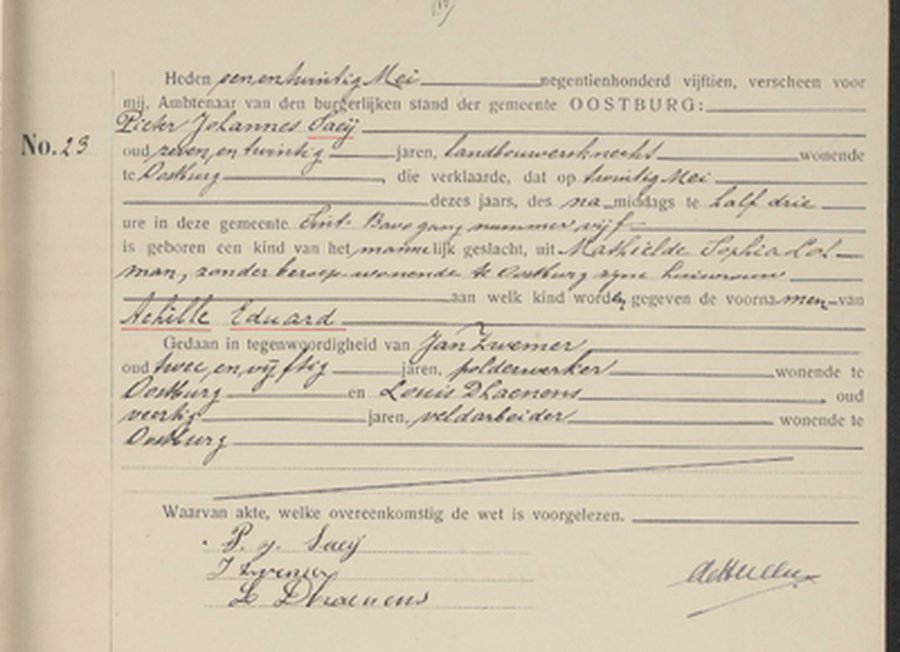 Heden een en twintig Mei negentienhonderd vijftien, verscheen voor
mij, Ambtenaar van den burgerlijken stand der gemeente OOSTBURG:
Pieter Johannes Saeij
No. 23
oud zeven en twintig jaren, landbouwersknecht wonende
te Oostburg, die verklaarde, dat op twintig Mei
dezes jaars, des na middags te half drie
ure in deze gemeente Sint Bavo gang nummer vijf
is geboren een kind van het mannelijk geslacht, uit Mathilde Sophia Lot-
man, zonder beroep wonende te Oostburg zijne huisvrouw
aan welk kind worden gegeven de voornamen van
Achille Eduard
Gedaan in tegenwoordigheid van Jan Zwemer
oud twee en vijftig jaren, polderwerker wonende te
Oostburg en Louis Dhaenens, oud
veertig jaren, veldarbeider wonende te
Oostburg
Waarvan akte, welke overeenkomstig de wet is voorgelezen.
P. J. Saeij
J Zwemer
L Dhaenens